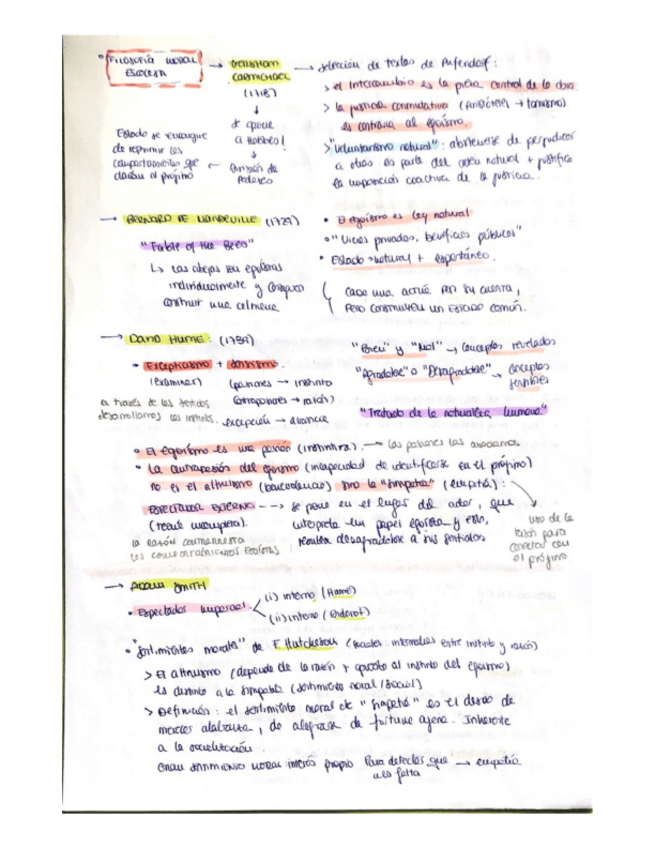 • FILOSOFÍA MORAL ESCOCESA → GERSHOM CARMICHAEL (1718) → selección de textos de Pufendorf:
> el Intercambio es la pieza central de la obra
> la justicia conmutativa (Aristóteles → tomismo)
es contraria al egoísmo.
> "voluntarismo natural": abstenerse de perjudicar
a otros es parte del orden natural + justifica
la imposición coactiva de la justicia.
↓
se opone
a Hobbes!
↓
Estado se encargue
de reprimir los
comportamientos que
dañan al prójimo
→ BERNARD DE MANDEVILLE (1729)
"Fable of the Bees"
↳ Las abejas son egoístas
individualmente y consiguen
construir una colmena
• El egoísmo es ley natural
• "Vicios privados, beneficios públicos"
• Estado natural + espontáneo.
Cada una actúa por su cuenta,
pero construyen un ESTADO común.
→ DAVID HUME: (1739)
• Escepticismo + dualismo
(examinar) (pasiones → instinto
a través de los sentidos
desarrollamos los instintos.
"Bien" y "Mal" → conceptos revelados
"Agradable" o "Desagradable" → conceptos sensibles
"Tratado de la naturaleza humana"
• El egoísmo es una pasión (instintiva). → las pasiones las asociamos
• La contraposición del egoísmo (incapacidad de identificarse en el prójimo)
no es el altruismo (benevolencia) sino la "simpatía" (empatía):
ESPECTADOR EXTERNO --> se pone en el lugar del actor, que
interpreta un papel egoísta y esto,
resulta desagradable a sus sentidos
uso de la
razón para
conectar con
el prójimo
→ ADAM SMITH
• Espectador imparcial: (i) interno (Hume)
(ii) interno (Diderot)
• "Sentimientos morales" de F. Hutcheson (facultades intermedias entre instinto y razón)
> El altruismo (depende de la razón + opuesto al instinto del egoísmo)
es distinto a la simpatía (sentimiento moral/social)
> Definición: el sentimiento moral de "simpatía" es el deseo de
merecer alabanza, de alegrarse de fortuna ajena. Inherente
a la socialización.